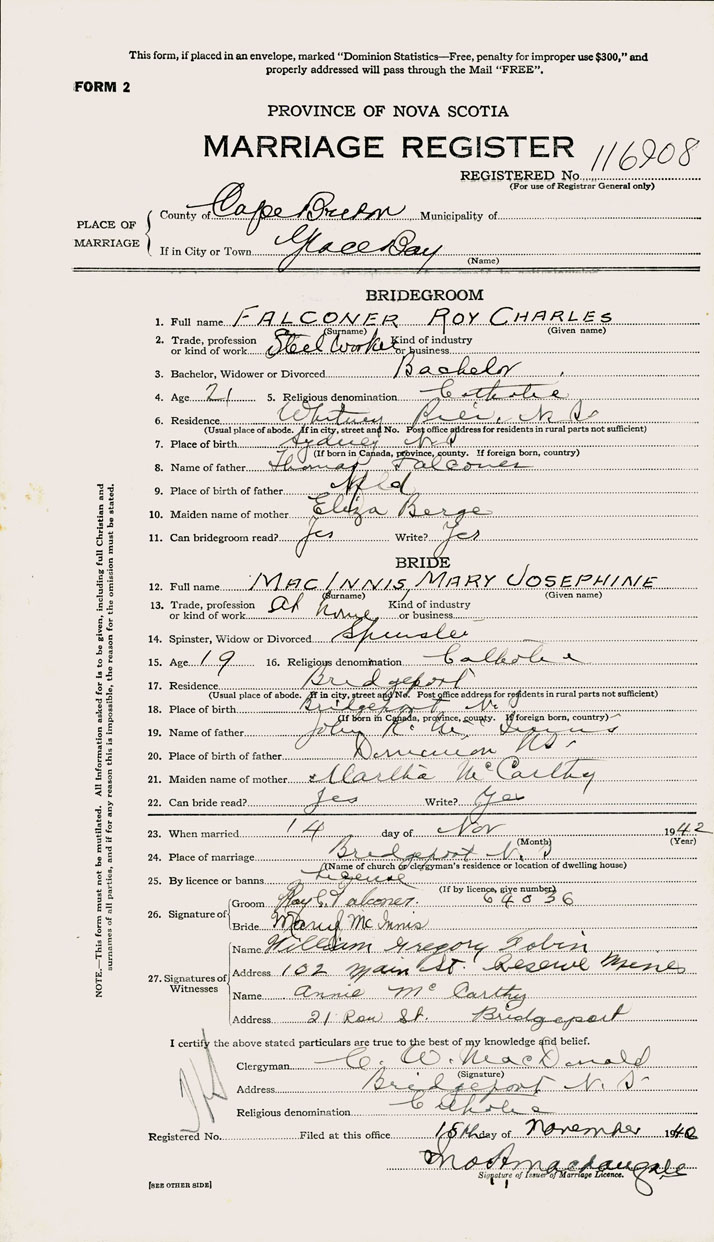 This form, if placed in an envelope, marked "Dominion Statistics—Free, penalty for improper use $300," and
properly addressed will pass through the Mail "FREE".
FORM 2
PROVINCE OF NOVA SCOTIA
MARRIAGE REGISTER
116908
REGISTERED No.
(For use of Registrar General only)
PLACE OF MARRIAGE
County of Cape Breton Municipality of
If in City or Town Glace Bay
(Name)
BRIDEGROOM
1. Full name FALCONER ROY CHARLES
(Surname) (Given name)
2. Trade, profession or kind of work Steel Worker Kind of industry or business
3. Bachelor, Widower or Divorced Bachelor
4. Age 21 5. Religious denomination Catholic
6. Residence Whitney Pier, N.S.
(Usual place of abode. If in city, street and No. Post office address for residents in rural parts not sufficient)
7. Place of birth Sydney N.S
(If born in Canada, province, county. If foreign born, country)
8. Name of father Thomas Falconer
9. Place of birth of father Nfld
10. Maiden name of mother Eliza Berge
11. Can bridegroom read? Yes Write? Yes
BRIDE
12. Full name MACINNIS, MARY JOSEPHINE
(Surname) (Given name)
13. Trade, profession or kind of work at home Kind of industry or business
14. Spinster, Widow or Divorced Spinster
15. Age 19 16. Religious denomination Catholic
17. Residence Bridgeport
(Usual place of abode. If in city, street and No. Post office address for residents in rural parts not sufficient)
18. Place of birth Bridgeport N.S
(If born in Canada, province, county. If foreign born, country)
19. Name of father John R. Mc Innis
20. Place of birth of father Dominion N.S.
21. Maiden name of mother Martha McCarthy
22. Can bride read? Yes Write? Yes
23. When married 14 day of Nov 1942
(Month) (Year)
24. Place of marriage Bridgeport N.S
(Name of church or clergyman's residence or location of dwelling house)
25. By licence or banns License
(If by licence, give number) 64836
26. Signature of
Groom Roy C. Falconer.
Bride Mary McInnis
27. Signatures of Witnesses
Name William Gregory Tobin
Address 102 Main St. Reserve Mines
Name Annie McCarthy
Address 21 Row St. Bridgeport
I certify the above stated particulars are true to the best of my knowledge and belief.
Clergyman C. W. MacDonald
(Signature)
Address Bridgeport N.S.
Religious denomination Catholic
Registered No. Filed at this office 18th day of November 1942
Signature of Issuer of Marriage Licence.
[SEE OTHER SIDE]
NOTE.—This form must not be mutilated. All information asked for is to be given, including full Christian and
surnames of all parties, and if for any reason this is impossible, the reason for the omission must be stated.